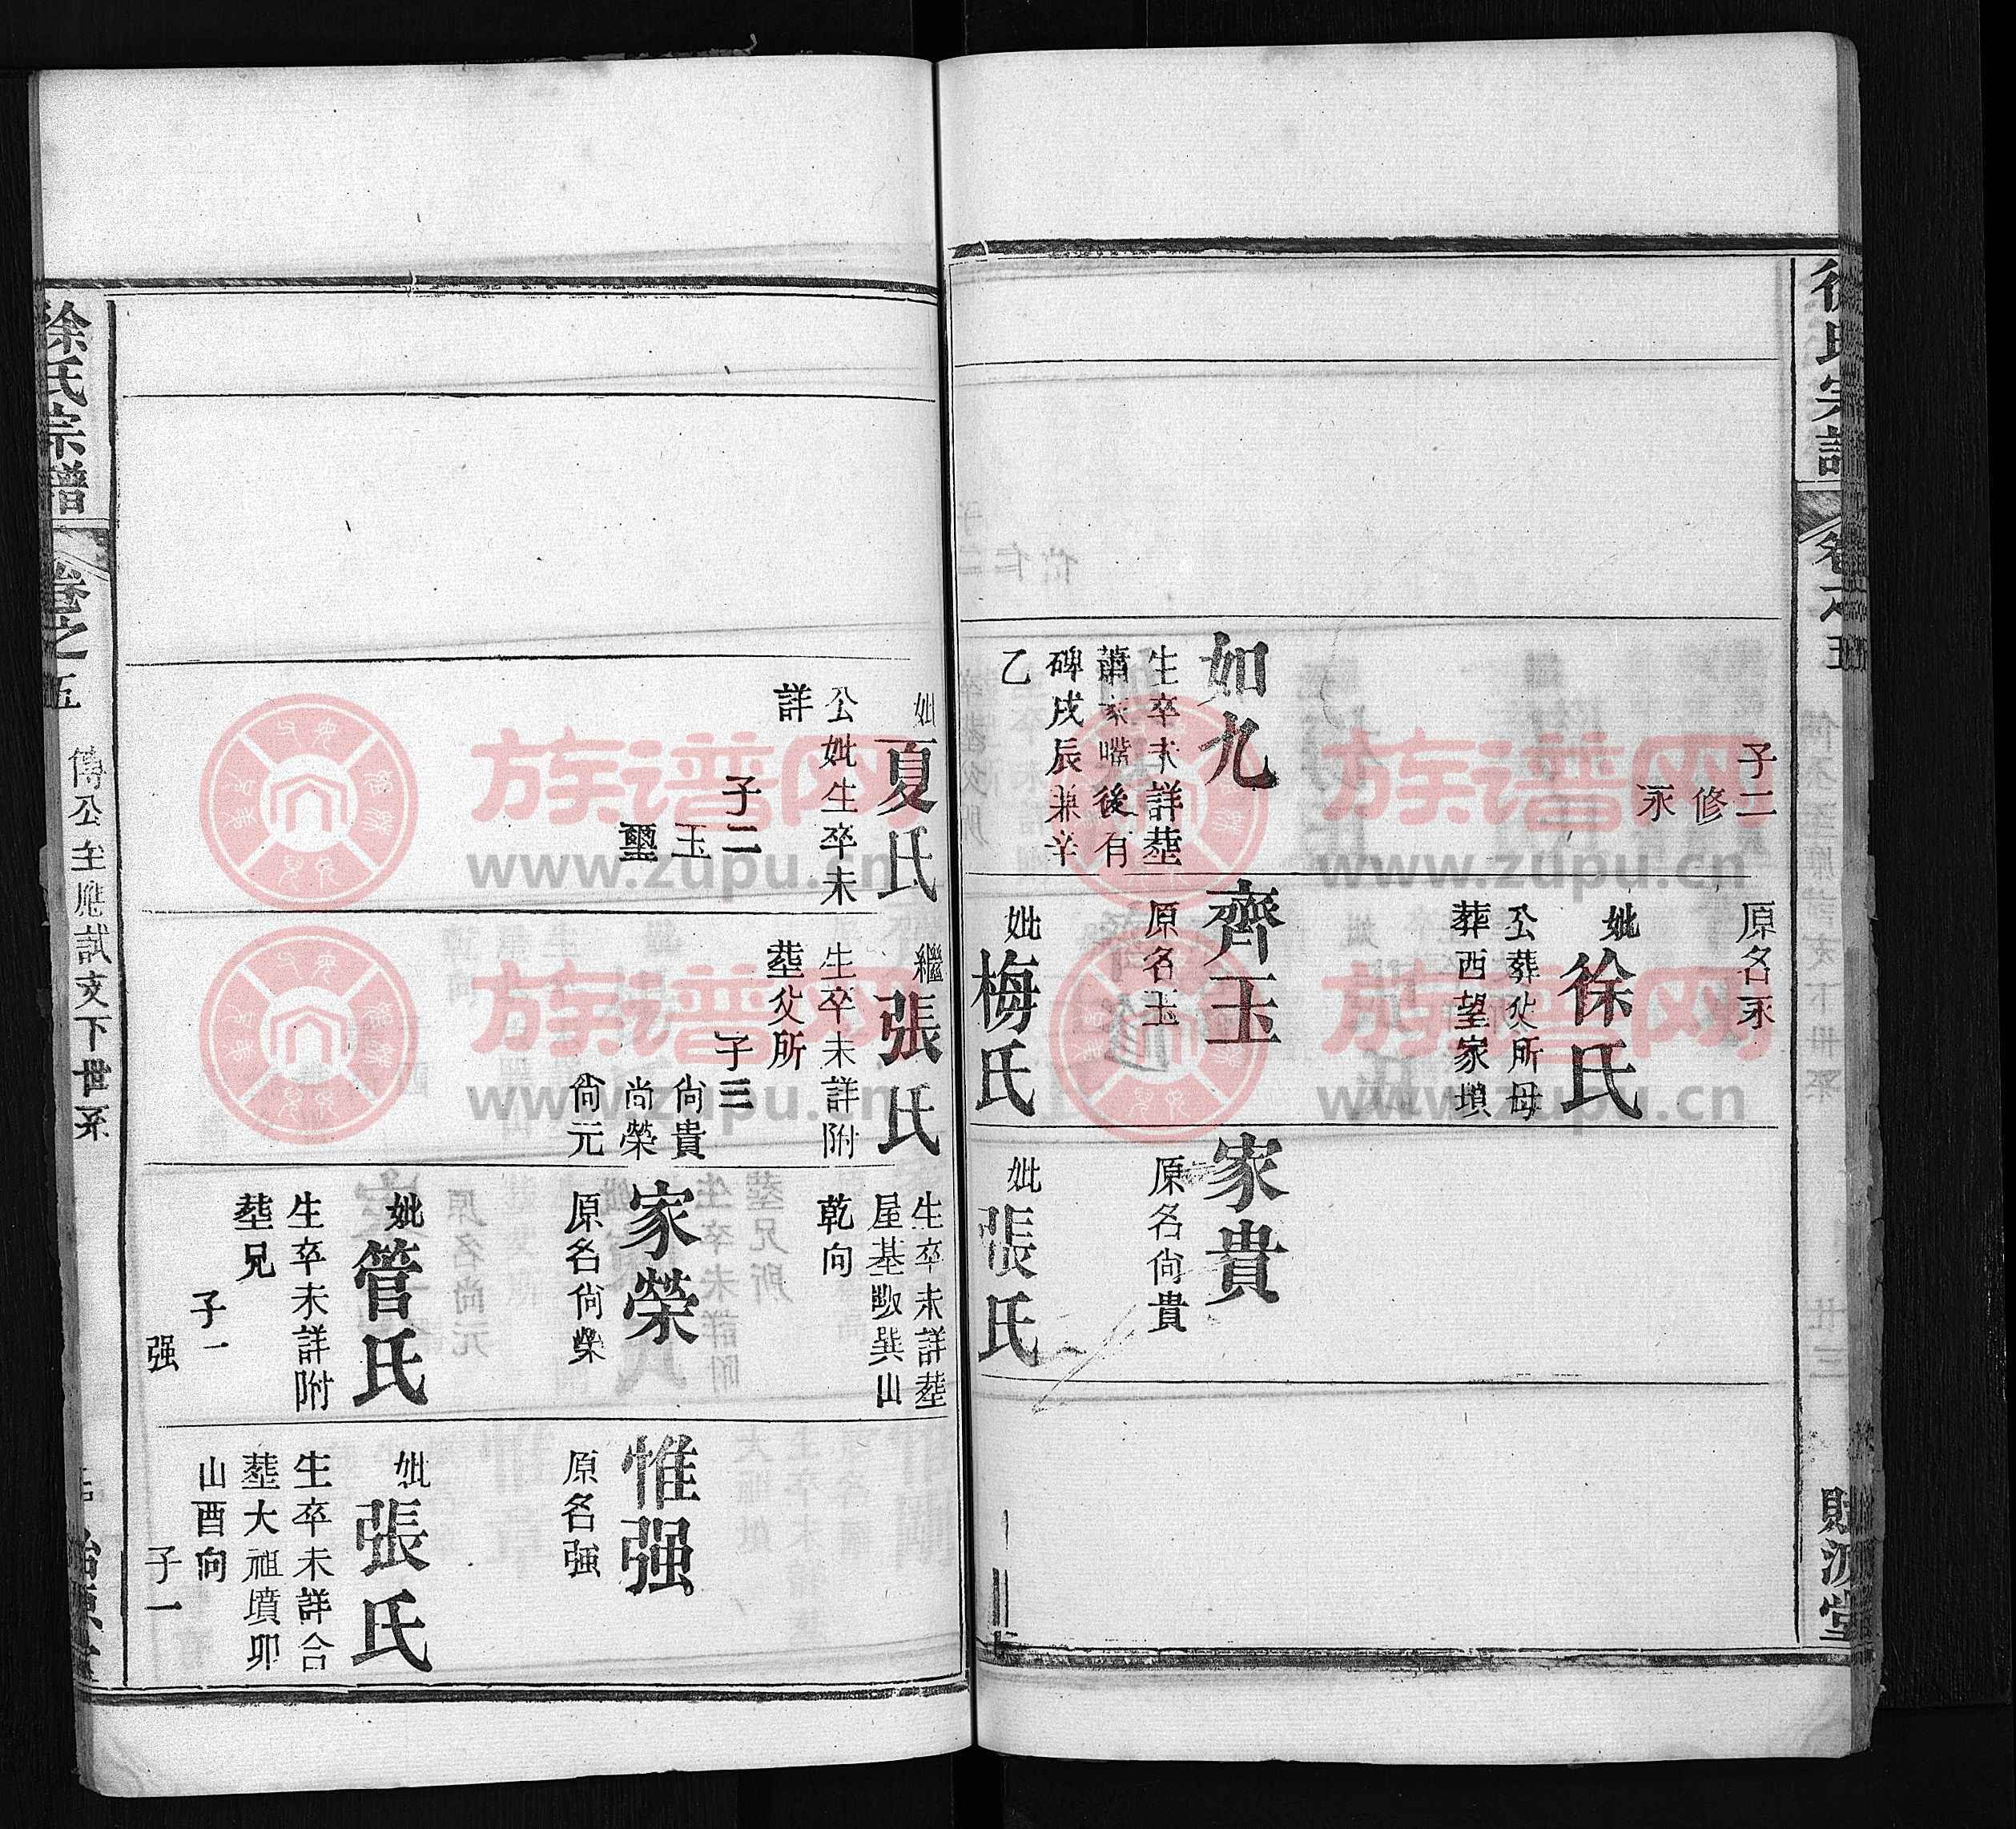 徐氏宗譜
卷之五
財源堂
子二
修
永
如九
生卒未詳塟
蕭家嘴後有
碑戌辰兼辛
乙
原名永
妣徐氏
公葬父所母
葬西望家墳
齊玉
原名玉
妣梅氏
家貴
原名尙貴
妣張氏
妣夏氏
公妣生卒未
詳
子二
玉
璽
繼張氏
生卒未詳附
塟父所
子三
尙貴
尙榮
尙元
生卒未詳塟
屋基畈巽山
乾向
家榮
原名尙榮
妣管氏
生卒未詳附
塟兄
子一
强
惟强
原名强
妣張氏
生卒未詳合
塟大祖墳卯
山酉向
子一
徐氏宗譜
卷之五
傳公至應試支下世系
族谱网
www.zupu.cn
族谱网
www.zupu.cn
族谱网
www.zupu.cn
族谱网
www.zupu.cn